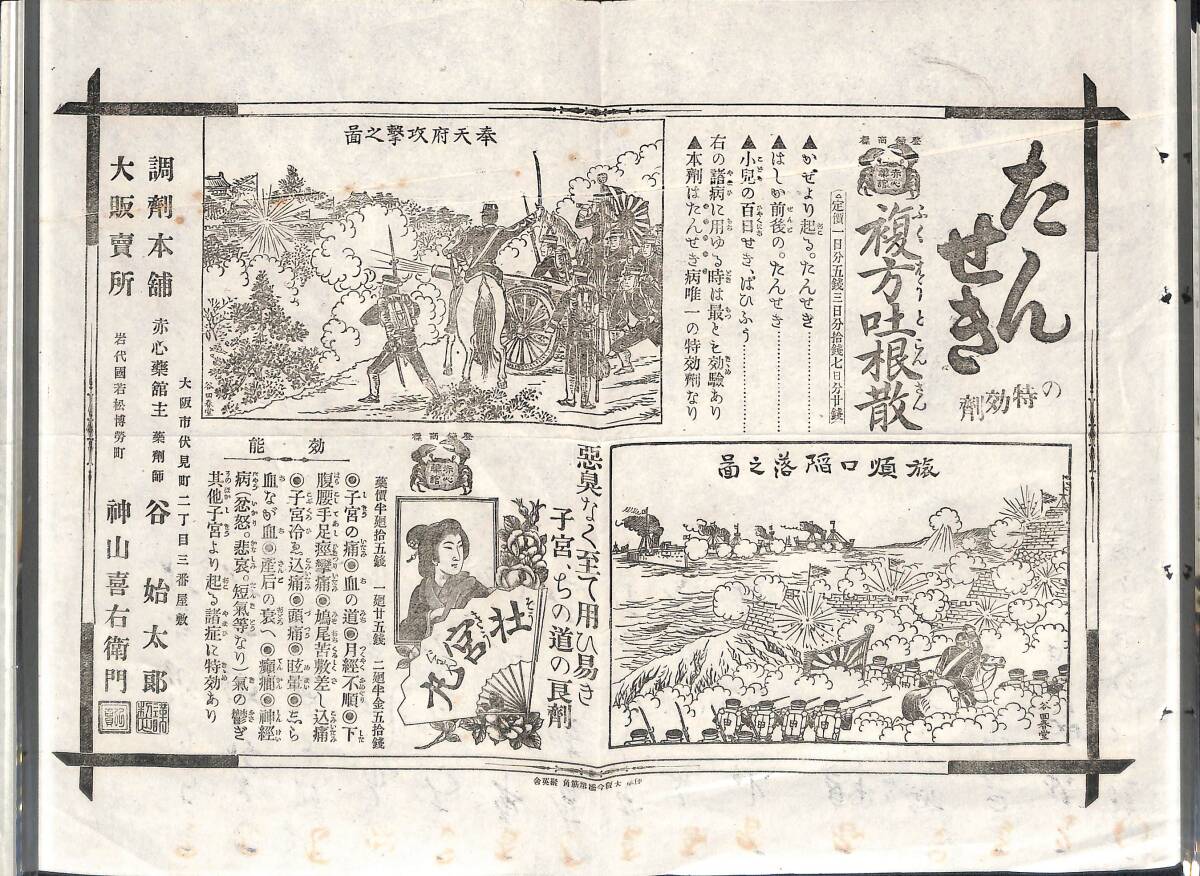 たんせき
の特効劑
登録商標
赤心藥舘
複方吐根散
ふくはうとこんさん
定價一日分五錢三日分拾錢七日分廿錢
▲かぜより起る。たんせき
▲はしか前後の。たんせき
▲小兒の百日せき、ぱひふう
右の諸病に用ゆる時は最とも効驗あり
▲本劑はたんせき病唯一の特効劑なり
奉天府攻撃之圖
谷田春堂
旅順口陥落之圖
谷田春堂
惡臭なく至て用ひ易き
子宮、ちの道の良劑
登録商標
赤心藥舘
壮宮丸
藥價半廻拾五錢 一廻廿五錢 二廻半金五拾錢
効能
◉子宮の痛◉血の道◉月經不順◉下
腹腰手足痙攣痛◉鳩尾苦敷差し込痛
◉子宮冷ゑ込痛◉頭痛◉眩暈◉とら
血なが血◉産后の衰へ◉癲癇◉神經
病(忿怒。悲哀。短氣等なり)氣の鬱ぎ
其他子宮より起る諸症に特効あり
大阪市伏見町二丁目三番屋敷
調劑本舗 赤心藥舘主 藥劑師 谷始太郎
大販賣所 岩代國若松博勞町 神山喜右衛門